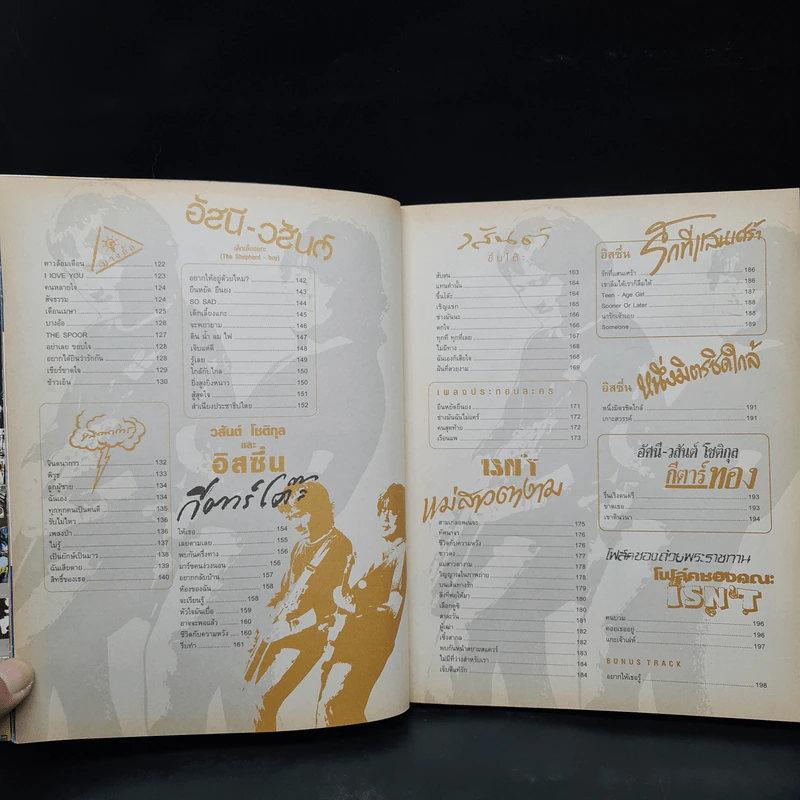 บางอ้อ
ดาวล้อมเดือน 122
I LOVE YOU 123
คนหลายใจ 124
สัจธรรม 124
เดือนเมษา 125
บางอ้อ 126
THE SPOOR 127
อย่าเลย ขอบใจ 128
อยากได้ยินว่ารักกัน 128
เชียร์ขาดใจ 129
ข้าวเย็น 130
จินตนาการ 132
พิรุธ 132
ลูกผู้ชาย 133
ฉันเอง 134
ทุกทุกคนเป็นคนดี 135
รับไม่ไหว 136
เพลงป่า 136
ไม่รู้ 137
เป็นยักษ์เป็นมาร 138
ฉันเสียดาย 139
สิทธิ์ของเธอ 140
อัสนี-วสันต์
เด็กเลี้ยงแกะ
(The Shepherd - boy)
อยากให้อยู่ด้วยไหม? 142
ยืนหยัด ยืนยง 143
SO SAD 144
เด็กเลี้ยงแกะ 145
จะพยายาม 146
ดิน น้ำ ลม ไฟ 147
เจ็บแค่ดี 148
รู้เลย 149
ใกล้กับไกล 150
ยิ่งสูงยิ่งหนาว 150
สู้สุดใจ 151
สำเนียงประชาธิปไตย 152
วสันต์ โชติกุล
และ
อิสซึ่น
กีตาร์โต๊ะ
ให้เธอ 154
เลยตามเลย 155
พบกันครึ่งทาง 156
มาร์ชคนง่วงนอน 156
อยากกลับบ้าน 157
ห้องของฉัน 158
จะเรียนรู้ 158
หัวใจมันเบื่อ 159
อาจจะพอแล้ว 160
ชีวิตกับความหวัง 160
รีบทำ 161
วสันต์
ขึ้นโต๊ะ
สับสน 163
แทนคำนั้น 164
ขึ้นโต๊ะ 164
เชิญแขก 165
ช่างมันนะ 166
ตกใจ 166
ทุกที ทุกทีเลย 167
ไม่มีทาง 168
ฉันเองก็เสียใจ 168
ฉันที่สวยงาม 169
เพลงประกอบละคร
ยืนหยัดยืนยง 171
ช่างมันฉันไม่แคร์ 172
คนสุดท้าย 172
เรือนแพ 173
ISN'T
แม่สาวตางาม
สามเกลอพเนจร 175
ทัศนาจร 175
ชีวิตกับความหวัง 176
ชาวดง 177
แม่สาวตางาม 178
วิญญาณในภาพถ่าย 178
บนเส้นทางรัก 179
สิ่งที่พ่อให้มา 180
เลือกดูซิ 180
สวดะวัน 181
ผู้เฒ่า 181
เซิ้งสากล 182
พบกันหน้าสยามสแควร์ 183
ไม่มีที่ว่างสำหรับเรา 184
เจ็บดีแท้รัก 184
อิสซึ่น
รักที่แสนเศร้า
รักที่แสนเศร้า 186
เขาลืมได้เราก็ลืมได้ 186
Teen - Age Girl 187
Sooner Or Later 188
น่ารักเจ้าเอย 188
Someone 189
อิสซึ่น
หนึ่งมิตรชิดใกล้
หนึ่งมิตรชิดใกล้ 191
เกาะสวรรค์ 191
อัศนี-วสันต์ โชติกุล
กีตาร์ทอง
รื่นเริงดนตรี 193
ขาดเธอ 193
เขาดินวนา 194
โฟล์คซองถ้วยพระราชทาน
โฟล์คซองคณะ
ISN'T
คนขวม 196
คอยเธออยู่ 196
แกะเจ้าเล่ห์ 197
BONUS TRACK
อยากให้เธอรู้ 198